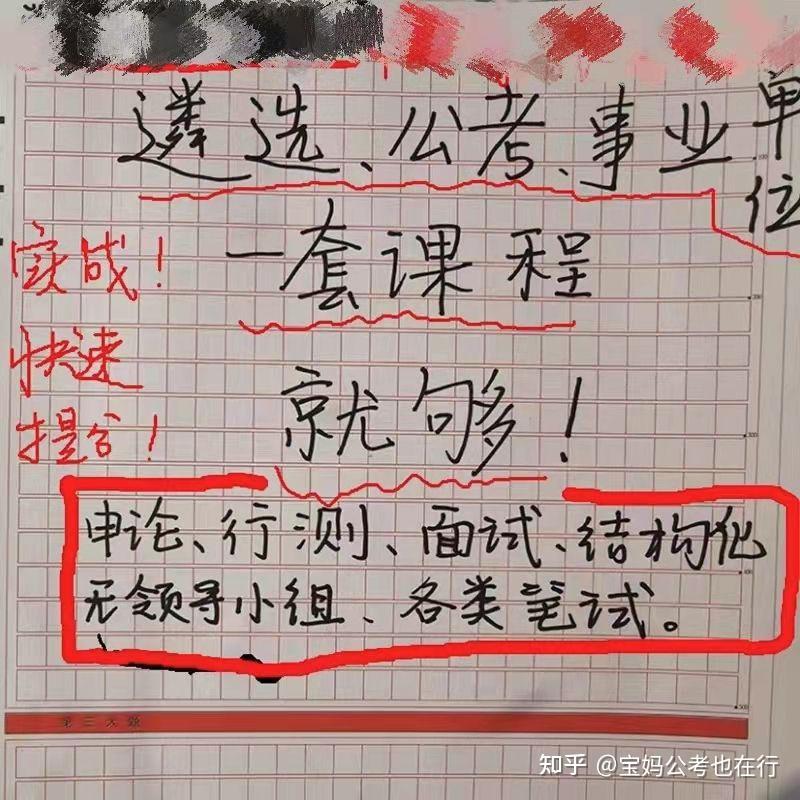 遴选、公考、事业单位
一套课程
就够!
实战!
快速
提分!
申论、行测、面试、结构化
无领导小组、各类笔试。
第三大题
知乎 @宝妈公考也在行